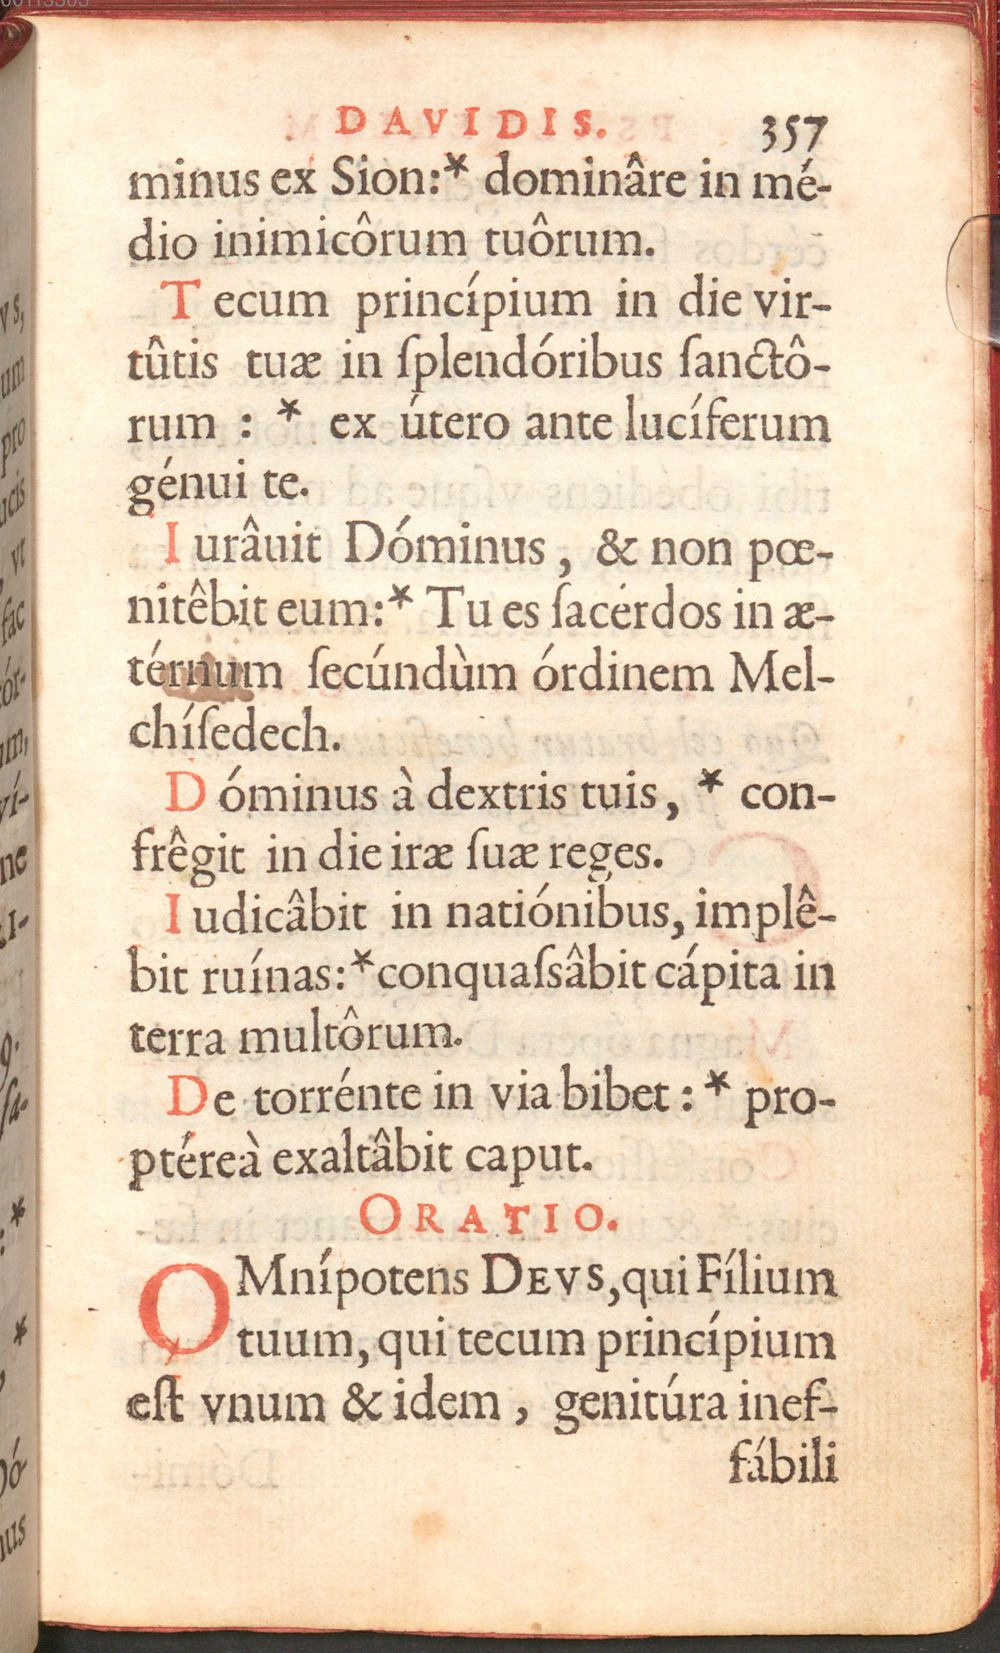 DAVIDIS. 357
minus ex Sion:* dominâre in mé-
dio inimicôrum tuôrum.
Tecum princípium in die vir-
tûtis tuæ in ſplendóribus ſanctô-
rum : * ex útero ante lucíferum
génui te.
Iurâuit Dóminus, & non pœ-
nitêbit eum:* Tu es ſacérdos in æ-
térnum ſecúndùm órdinem Mel-
chíſedech.
Dóminus à dextris tuis, * con-
frêgit in die iræ ſuæ reges.
Iudicâbit in natiónibus, implê-
bit ruínas:* conquaſsâbit cápita in
terra multôrum.
De torrénte in via bibet : * pro-
ptéreà exaltâbit caput.
ORATIO.
OMnípotens DEVS, qui Fílium
tuum, qui tecum princípium
eſt vnum & idem, genitúra inef-
fábili